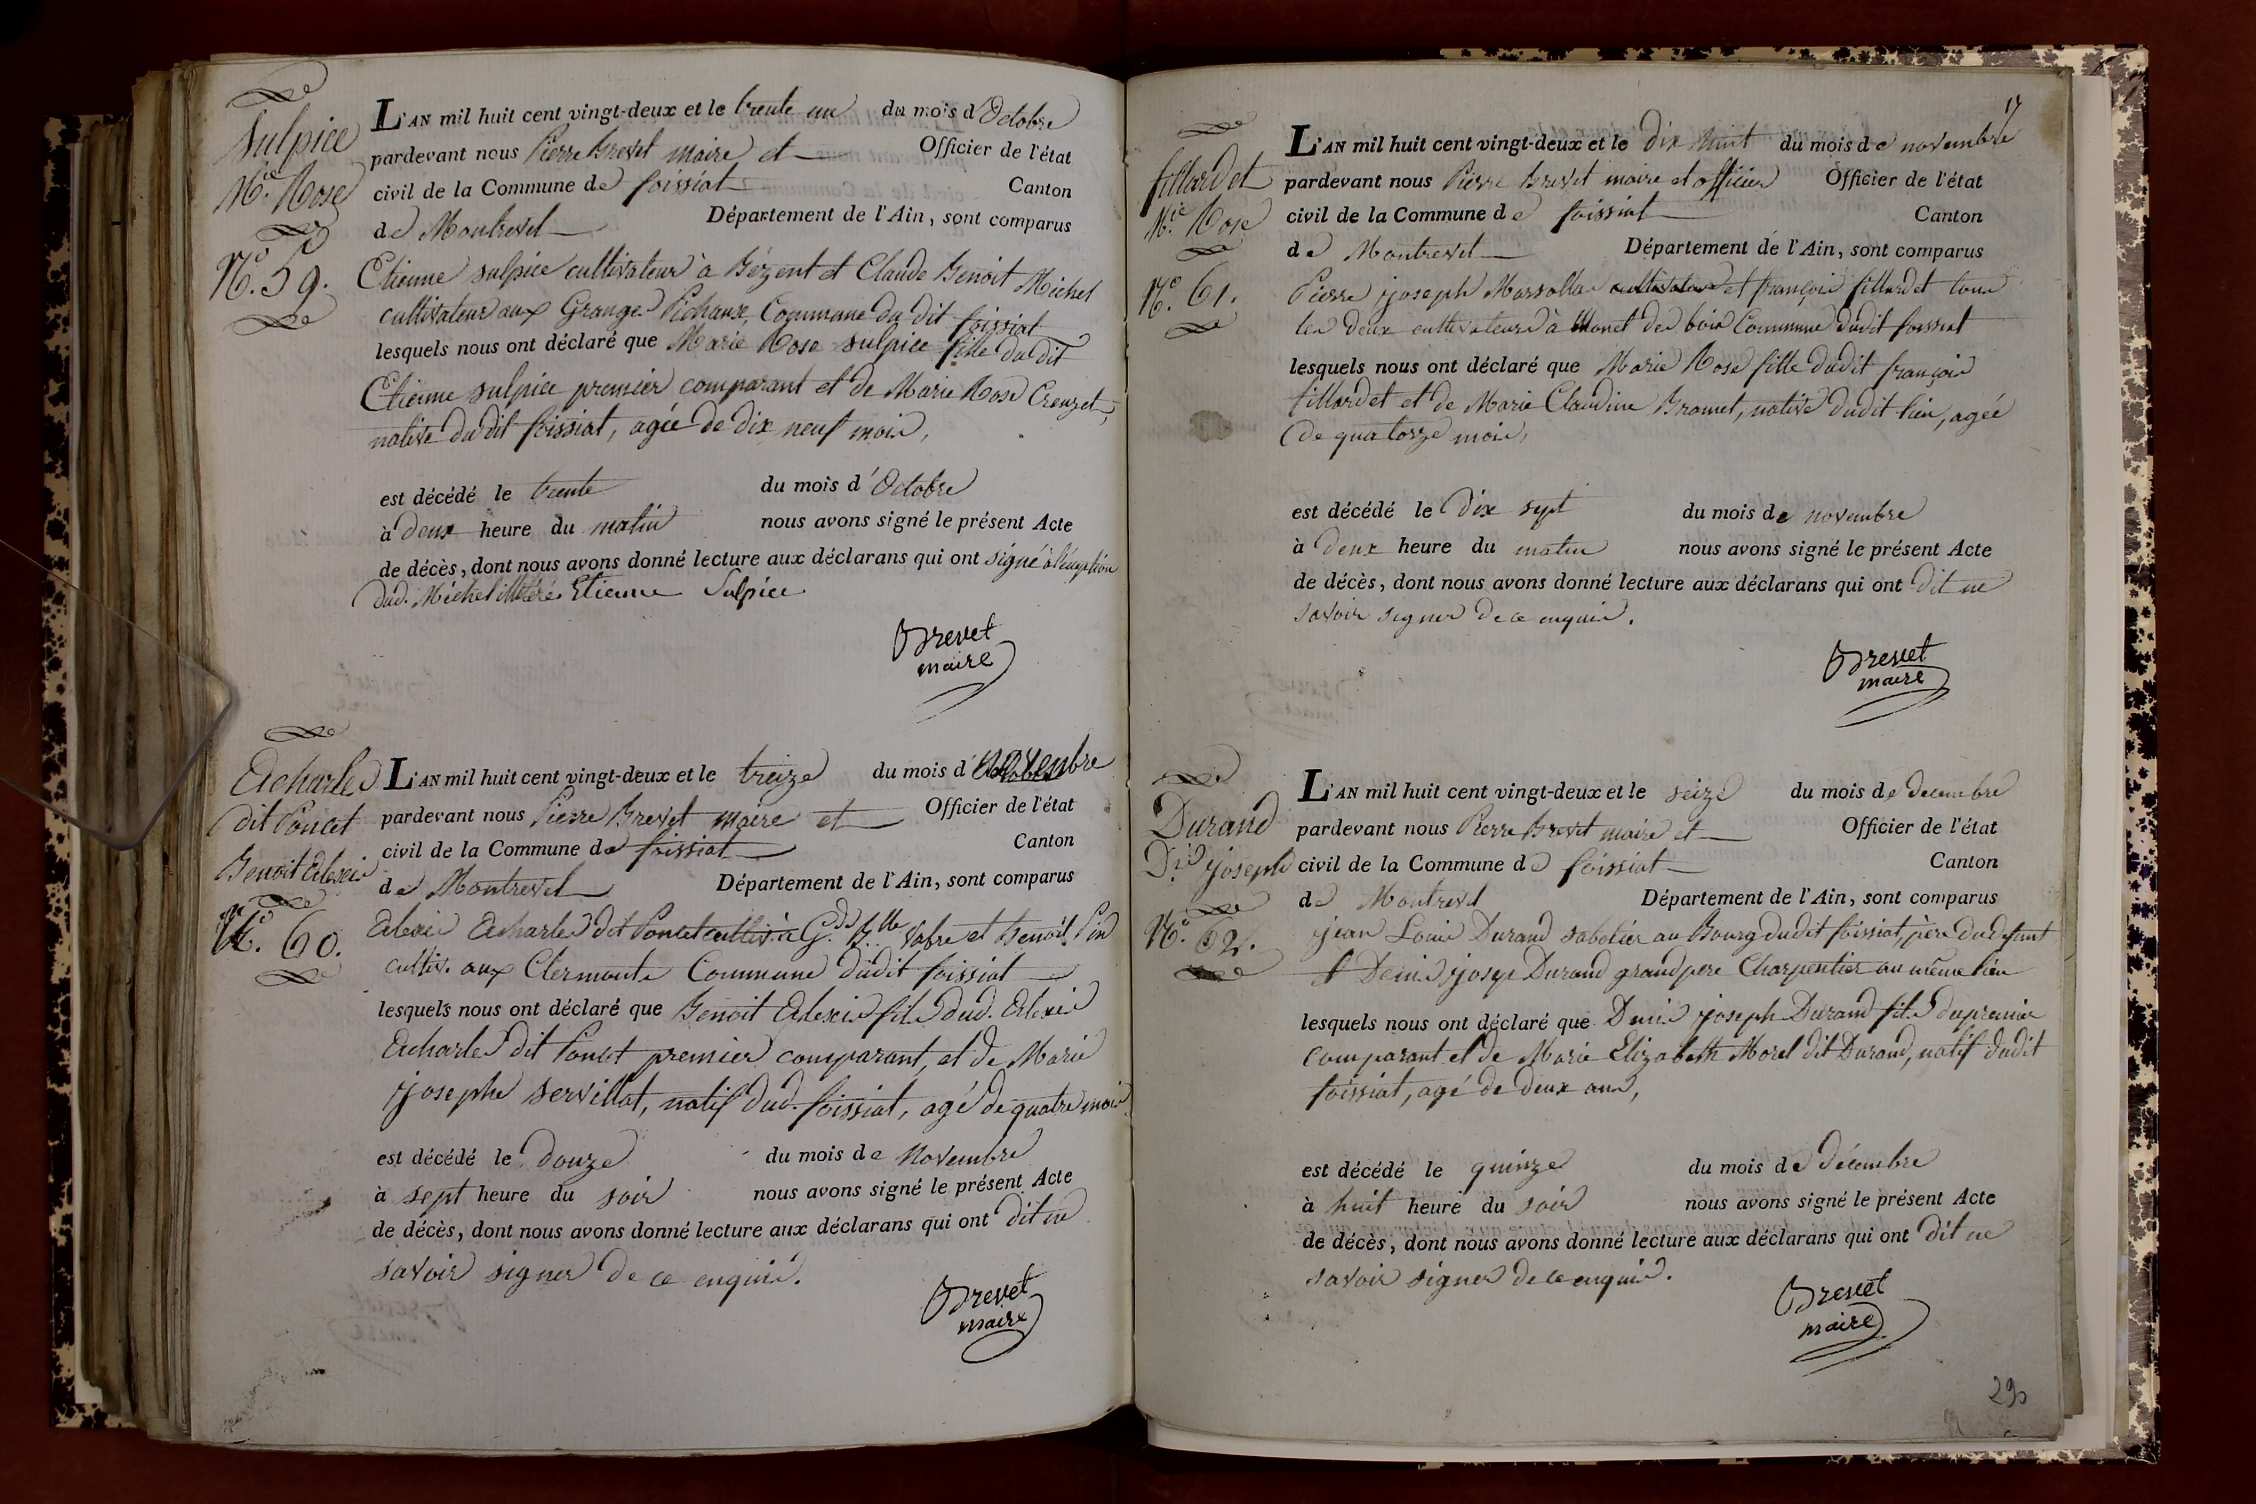 Sulpice
M.ie Rose
N.o 59.
L'AN mil huit cent vingt-deux et le trente un du mois d'Octobre
pardevant nous Pierre Brevet maire et Officier de l'état
civil de la Commune de foissiat Canton
de Montrevel Département de l'Ain, sont comparus
Etienne sulpice cultivateur à Bézent et Claude Benoit Michel
cultivateur aux Granges Pichaux, Commune du dit foissiat
lesquels nous ont déclaré que Marie Rose sulpice fille du dit
Etienne sulpice premier comparant et de Marie Rose Creuzet,
native du dit foissiat, agée de dix neuf mois,
est décédé le trente du mois d'Octobre
à deux heure du matin nous avons signé le présent Acte
de décès, dont nous avons donné lecture aux déclarans qui ont signé à l'éxception
dud. Michel illitéré Etienne Sulpice
Brevet
maire
Acharles
dit Poncet
Benoit Alexis
N.o 60.
L'AN mil huit cent vingt-deux et le treize du mois d novembre
pardevant nous Pierre Brevet maire et Officier de l'état
civil de la Commune de foissiat Canton
de Montrevel Département de l'Ain, sont comparus
Alexis Acharles dit Poncet cultiv. à G.d et Benoit Pin
cultiv. aux Clermonts Commune dudit foissiat
lesquels nous ont déclaré que Benoit Alexis fils dud. Alexis
Acharles dit Poncet premier comparant, et de Marie
josephe Servillat, natif dud. foissiat, agé de quatre mois
est décédé le douze du mois de Novembre
à sept heure du soir nous avons signé le présent Acte
de décès, dont nous avons donné lecture aux déclarans qui ont dit ne
savoir signer de ce enquis.
Brevet
maire
17
fillardet
M.ie Rose
N.o 61.
L'AN mil huit cent vingt-deux et le dix huit du mois de novembre
pardevant nous Pierre Brevet maire et officier Officier de l'état
civil de la Commune de foissiat Canton
de Montrevel Département de l'Ain, sont comparus
Pierre joseph cultivateur et françois fillardet tous
les deux cultivateurs à Monet des bois Commune dudit foissiat
lesquels nous ont déclaré que Marie Rose fille dudit françois
fillardet et de Marie Claudine Bramet, native dudit lieu, agée
de quatorze mois,
est décédé le dix sept du mois de novembre
à deux heure du matin nous avons signé le présent Acte
de décès, dont nous avons donné lecture aux déclarans qui ont dit ne
savoir signer de ce enquis.
Brevet
maire
Durand
D.is joseph
N.o 62.
L'AN mil huit cent vingt-deux et le seize du mois de decembre
pardevant nous Pierre Brevet maire et Officier de l'état
civil de la Commune de foissiat Canton
de Montrevel Département de l'Ain, sont comparus
jean Louis Durand sabotier au Bourg dudit foissiat, père du defunt
& Denis Durand grand pere Charpentier au même lieu
lesquels nous ont déclaré que Denis joseph Durand fils du premier
comparant et de Marie Elizabeth Morel dit Durand, natif dudit
foissiat, agé de deux ans,
est décédé le quinze du mois de Décembre
à huit heure du soir nous avons signé le présent Acte
de décès, dont nous avons donné lecture aux déclarans qui ont dit ne
savoir signer de ce enquis.
Brevet
maire